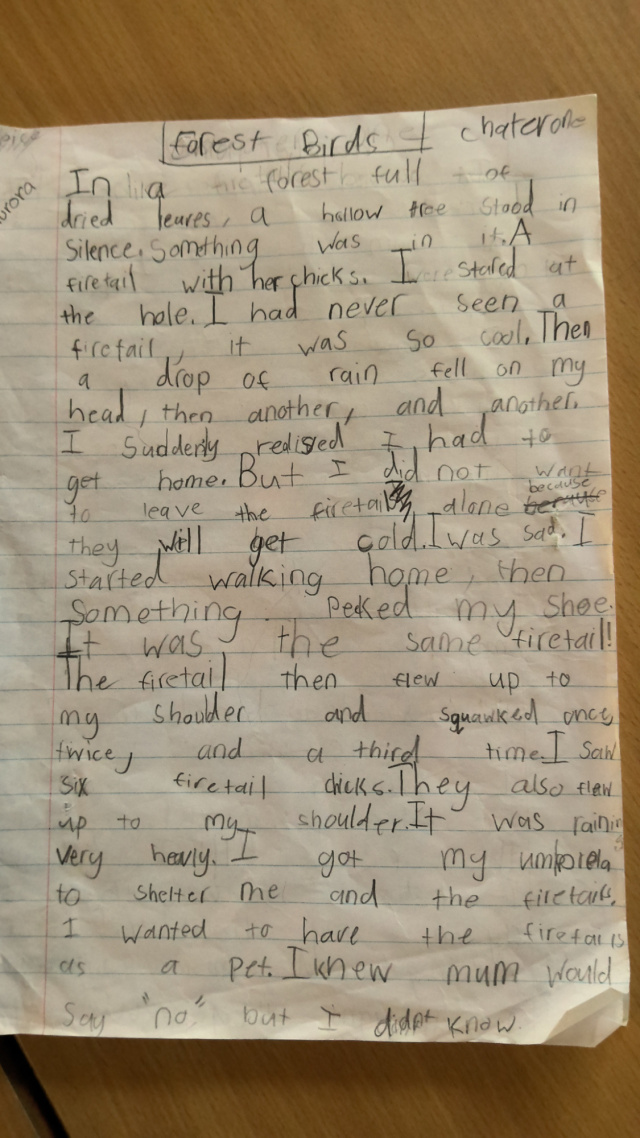 Forest Birds chaterone
urora
In a forest full of
dried leaves, a hollow tree stood in
Silence. Something was in it. A
firetail with her chicks. I stared at
the hole. I had never seen a
firetail, it was so cool. Then
a drop of rain fell on my
head, then another, and another.
I Suddenly redised I had to
get home. But I did not want
to leave the firetail alone because
they will get cold. I was sad. I
started walking home, then
Something Pecked my shoe.
It was the same firetail!
The firetail then flew up to
my shoulder and squawked once,
twice, and a third time. I saw
six firetail chicks. They also flew
up to my shoulder. It was raining
very heavly. I got my umbrela
to shelter me and the firetails.
I wanted to have the firetails
as a pet. I knew mum would
Say "no" but I didn't know.